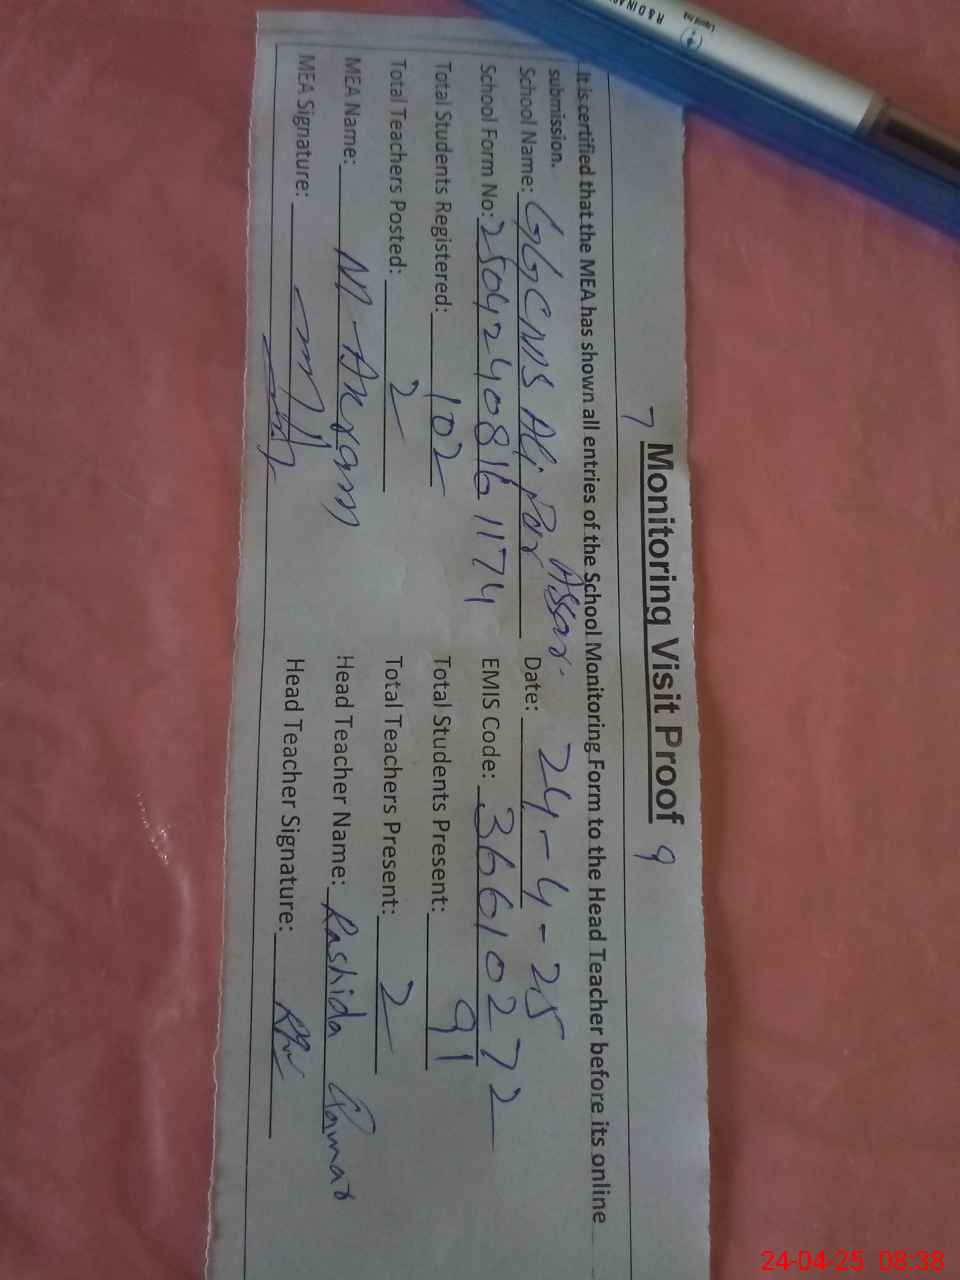 7 Monitoring Visit Proof 9
It is certified that the MEA has shown all entries of the School Monitoring Form to the Head Teacher before its online
submission.
School Name: GGCMS Ali Par Assar. Date: 24-4-25
School Form No: 2504240816 1174 EMIS Code: 36610272
Total Students Registered: 102 Total Students Present: 91
Total Teachers Posted: 2 Total Teachers Present: 2
MEA Name: M Akram Head Teacher Name: Rashida
MEA Signature: Head Teacher Signature:
Liquid ink
24-04-25 08:38